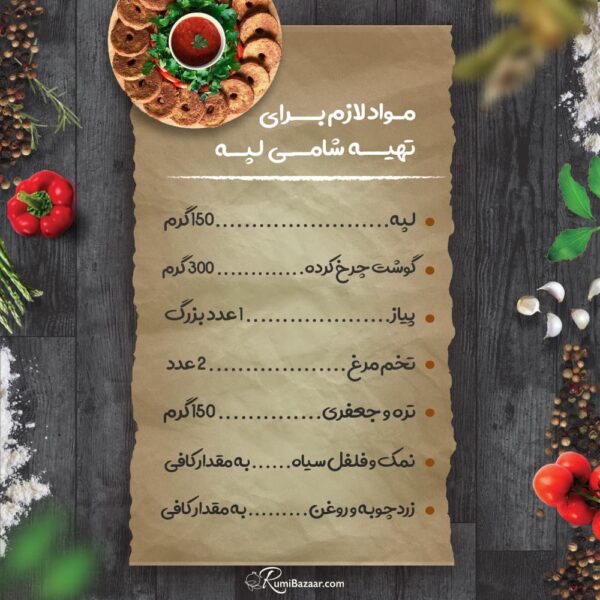 مواد لازم برای
تهیه شامی لپه
لپه......................150گرم
گوشت چرخ کرده............300گرم
پیاز...................1عدد بزرگ
تخم مرغ..................2عدد
تره و جعفری.............150گرم
نمک و فلفل سیاه......به مقدار کافی
زردچوبه و روغن.........به مقدار کافی
RumiBazaar.com